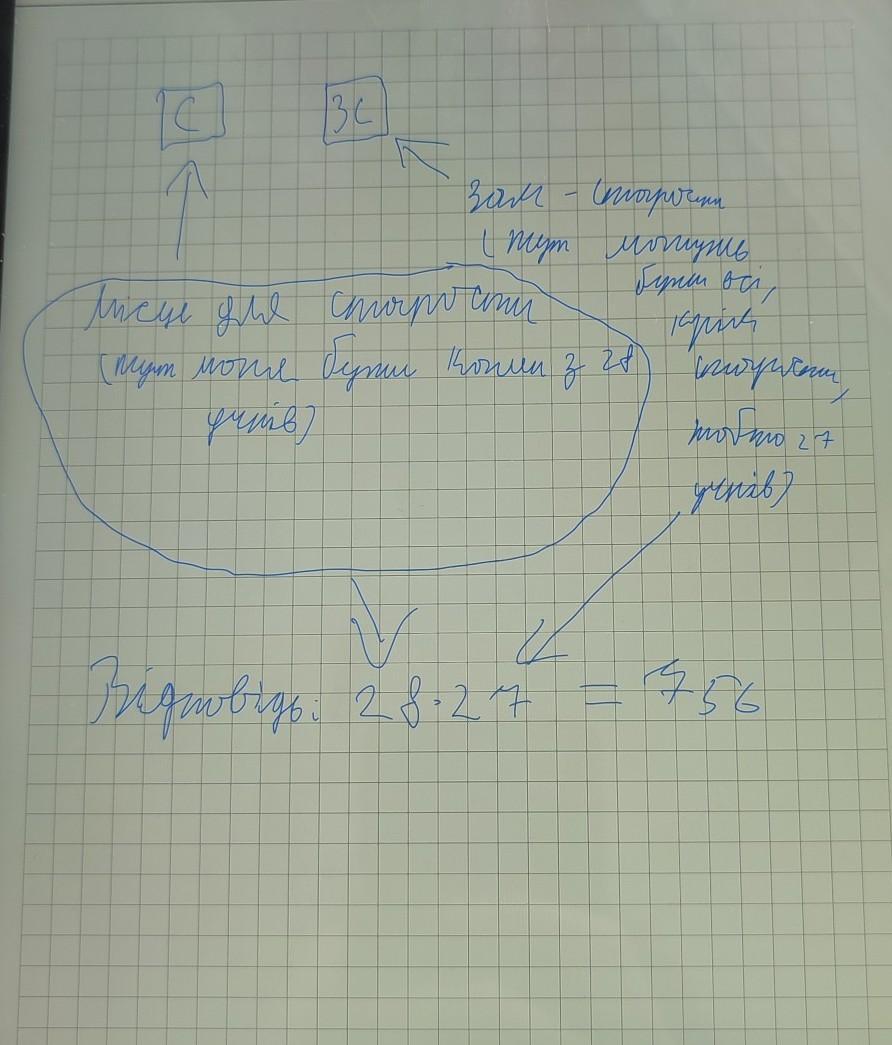 С ЗС
Зам - старости
(тут можуть
бути всі,
крім
старости,
тобто 27
учнів)
Місце для старости
(тут може бути кожен з 28
учнів)
Відповідь: 28·27 = 756